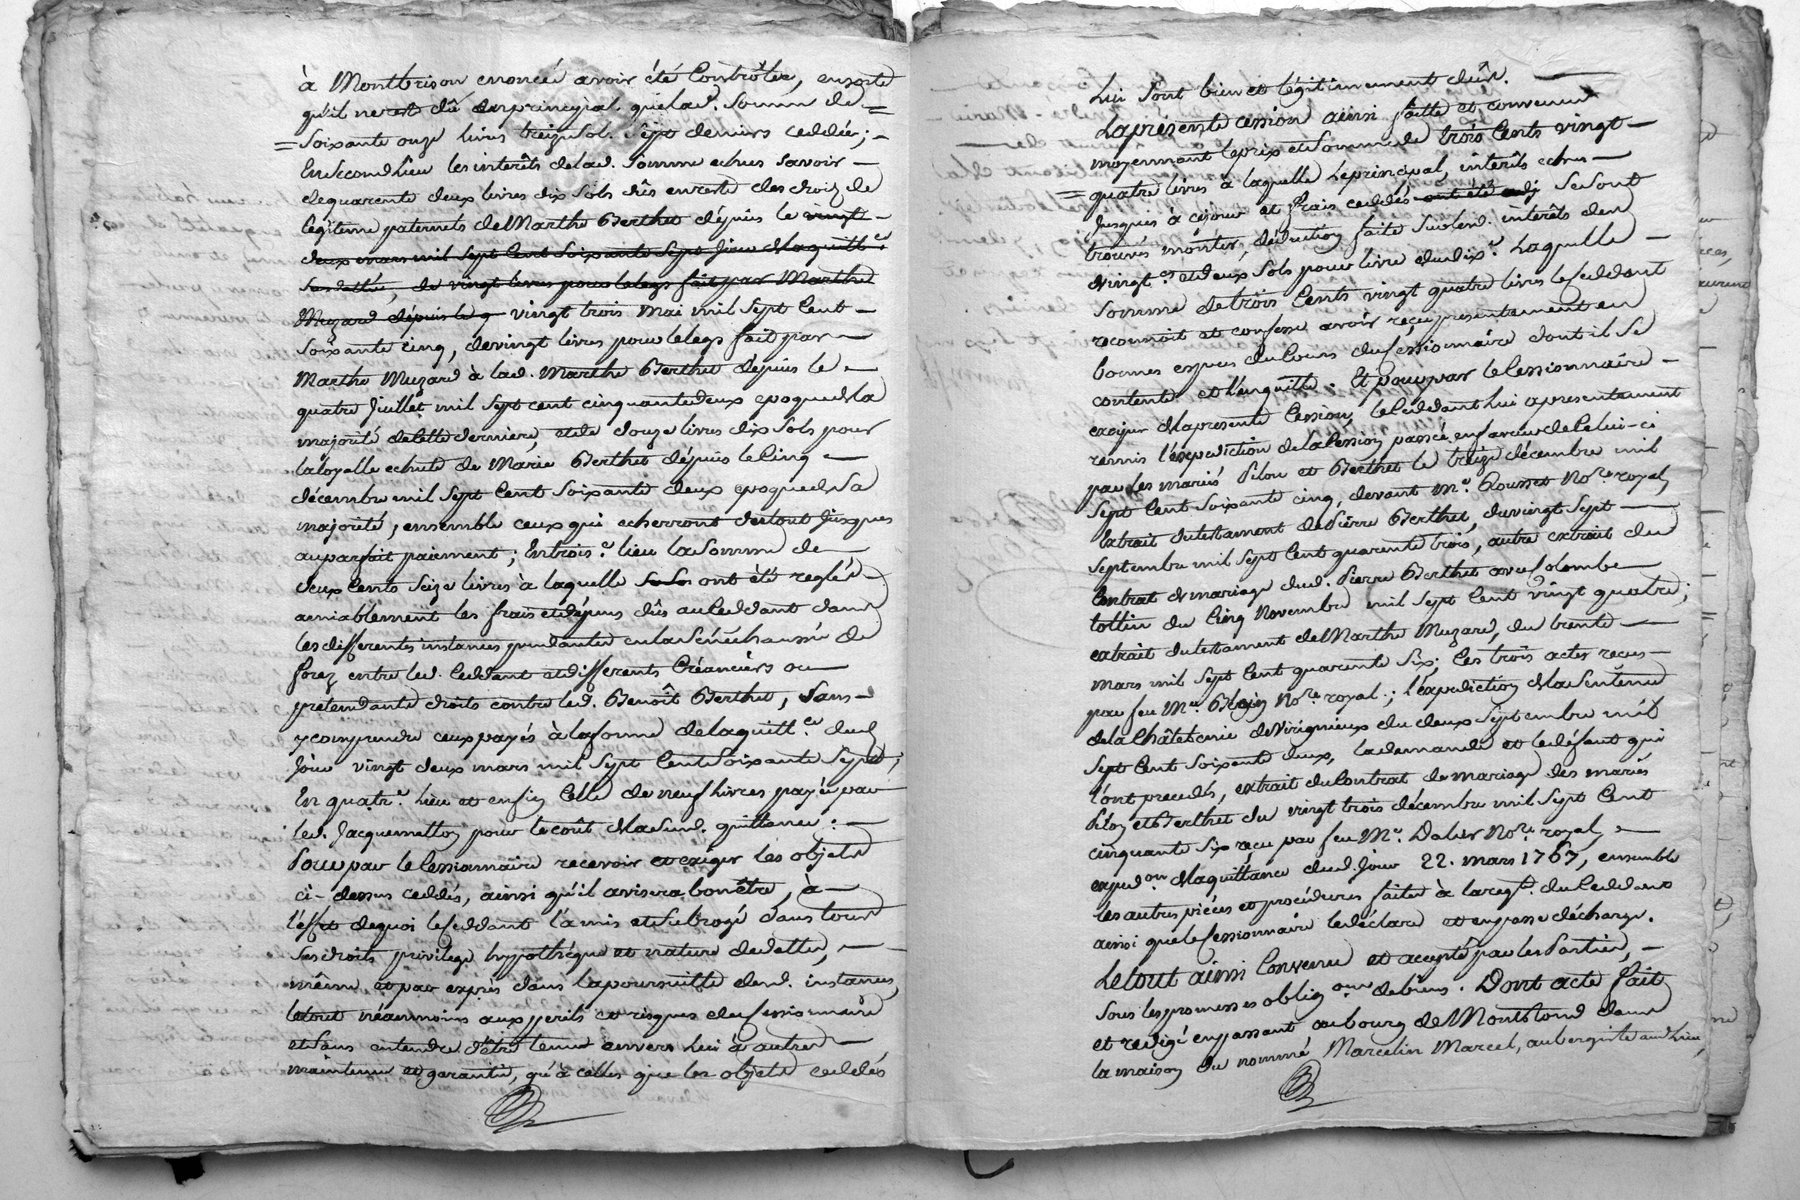 à Montbrison enoncée avoir été Controllée, ensorte
qu'il ne reste dû du principal que lad. Somme de =
= Soixante onze livres treize Sol. Sept deniers ceddée; -
En Second Lieu les interêts de lad. Somme echus Savoir -
de quarente deux livres dix Sols dûs en reste des droits de
légitime paternels de Marthe Berthet dépuis le vingt
deux mars mil Sept Cent Soixante Sept Jour de la quitt.ce
Sus dattée, de vingt livres pour le legs fait par Marthe
Muzard dépuis le q vingt trois Mai mil Sept Cent -
Soixante Cinq, de vingt livres pour le legs fait par -
Marthe Muzard à lad. Marthe Berthet dépuis le -
quatre Juillet mil Sept cent cinquante deux epoque de la
majorité de Cette derniere, et de douze livres dix Sols pour
la loyalle echute de Marie Berthet dépuis le Cinq -
décembre mil Sept Cent Soixante deux epoque de Sa
majorité, ensemble ceux qui echerront du tout Jusques
au parfait paiement; En trois.e lieu la Somme de
deux Cents Seize livres à laquelle ont été reglés
amiablement les frais et dépens dûs au Ceddant dans
les differentes instances pendantes en la Sénéchaussée de
forez entre led. Ceddant et differents Créanciers ou
prétendants droits contre led. Benoît Berthet, Sans -
y comprendre ceux payés à la forme de la quitt.ce dud
Jour vingt deux mars mil Sept Cent Soixante Sept;
En quatr.e lieu et enfin Celle de neuf livres payée par
led. Jacquemetton pour le coût de la Susd. quittance: -
Pour par le Cessionnaire recevoir et exiger les objets
ci-dessus ceddés, ainsi qu'il avisera bon être, à
l'effet de quoi le Ceddant l'a mis et Subrogé dans tous
Ses droits privilege hypothéque et nature de dette, -
même et par exprés dans la poursuitte desd. instances,
le tout néanmoins aux perils et risques du Cessionnaire
et Sans entendre être tenu envers lui à autres
maintenue et garantie, qu'à celles que les objets ceddés
Lui Sont bien et légitimement dûs.
La présente cession ainsi faitte et convenue
moyennant le prix et Somme de trois Cents vingt -
= quatre livres à laquelle le principal, intérêts echus -
Jusques à cejour et frais ceddés ont été Se Sont
trouvés monter, deduction faite Sur lesd. intérêts des
vingt.es et deux Sols pour livre du dix.e Laquelle -
Somme de trois Cents vingt quatre livres le Ceddant
reconnoit et confesse avoir reçu presentement en
bonnes especes du Cours du Cessionnaire dont il Se
contente et l'en quitte. Et pour par le Cessionnaire -
exiger de la presente Cession, le Ceddant lui a presentement
remis l'expedition de la Cession passée en faveur de Celui-ci
par les mariés Pilon et Berthet le treize décembre mil
Sept Cent Soixante cinq, devant M.e Rousset No.re royal,
Extrait du testament de Pierre Berthet, du vingt Sept
Septembre mil Sept Cent quarente trois, autre extrait du
Contrat de mariage dud. Pierre Berthet avec Colombe
tottin du Cinq Novembre mil Sept Cent vingt quatre;
extrait du testament de Marthe Muzard, du trente
mars mil Sept Cent quarente Six; Ces trois actes recus
par feu M.e Blein No.re royal; l'expedition de la Sentence
de la Châtelenie de Virignieux du deux Septembre mil
Sept Cent Soixante deux, la demande et le défaut qui
l'ont precedés, extrait du Contrat de mariage des mariés
Pilon et Berthet du vingt trois décembre mil Sept Cent
cinquante Six reçu par feu M.e No.re royal,
exped.on de la quittance dud. Jour 22. mars 1767, ensemble
les autres piéces et procédures faites à la req.te du Ceddant
ainsi que le Cessionnaire le déclare et en passe décharge.
Le tout ainsi Convenu et accepté par les Parties, -
Sous les promesses oblig.ons de biens. Dont acte fait
et redigé en passant au bourg de dans
la maison du nommé Marcelin Marcel, aubergiste aud. Lieu,